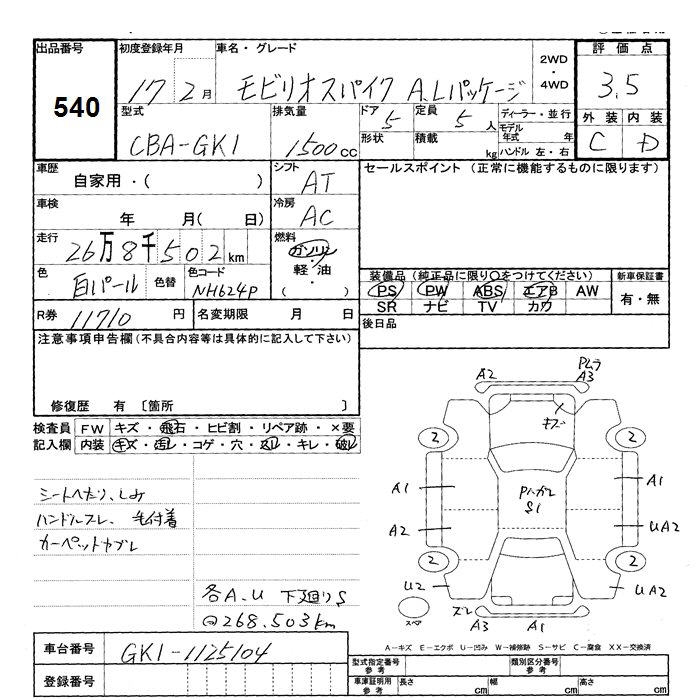 出品番号 初度登録年月 車名・グレード 2WD・4WD 評価点
540 17 2月 モビリオスパイク A.Lパッケージ 3.5
型式 排気量 ドア 5 定員 5人 ディーラー・並行 外装 内装
CBA-GK1 1500cc 形状 積載 kg モデル年式 年 ハンドル 左・右 C D
車歴 自家用・( ) シフト AT セールスポイント (正常に機能するものに限ります)
車検 年 月( 日) 冷房 AC
走行 26万8千502km 燃料 ガソリン・軽油 ( )
色 白パール 色替 色コード NH624P
装備品 (純正品に限り○をつけてください) 新車保証書
PS PW ABS エアB AW 有・無
SR ナビ TV カワ
R券 11710円 名変期限 月 日 後日品
注意事項申告欄(不具合内容等は具体的に記入して下さい)
修復歴 有 〔箇所 〕
検査員 FW キズ・飛石・ヒビ割・リペア跡・×要
記入欄 内装 キズ・汚レ・コゲ・穴・スレ・キレ・破レ
A2 Pムラ A3
キズ
2 2
A1 Pハガレ S1 A1
A2 UA2
2 2
U2 UA2
スペア ズレ A3 A1
シートへたり、しみ
ハンドルスレ、毛付着
カーペットカブレ
各A、U 下廻りS
@268.503km
A-キズ E-エクボ U-凹み W-補修跡 S-サビ C-腐食 XX-交換済
車台番号 GK1-1125104 型式指定番号 参考 類別区分番号 参考
登録番号 車庫証明用 参考 長さ cm 幅 cm 高さ cm